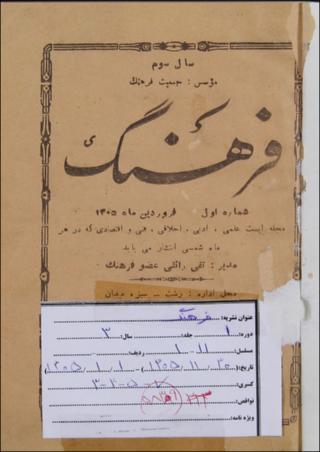 سال سوم
مؤسس : جمعیت فرهنگ
فرهنگ
شماره اول فروردین ماه ۱۳۰۵
مجله ایست علمی ، ادبی ، اخلاقی ، فنی و اقتصادی که در هر
ماه شمسی انتشار می یابد
مدیر : تقی رائقی عضو فرهنگ
محل اداره : رشت ــ سبزه میدان
عنوان نشریه: فرهنگ
دوره: ۱ جلد: سال: ۳
مسلسل: ۱۱ - ۱ ردیف:
تاریخ:
کسری:
نواقص:
ویژه نامه: